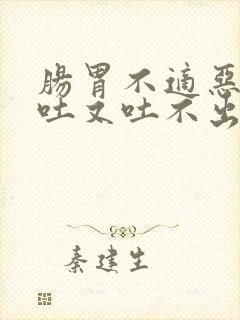 腸胃不適惡
吐又吐不出
秦建生